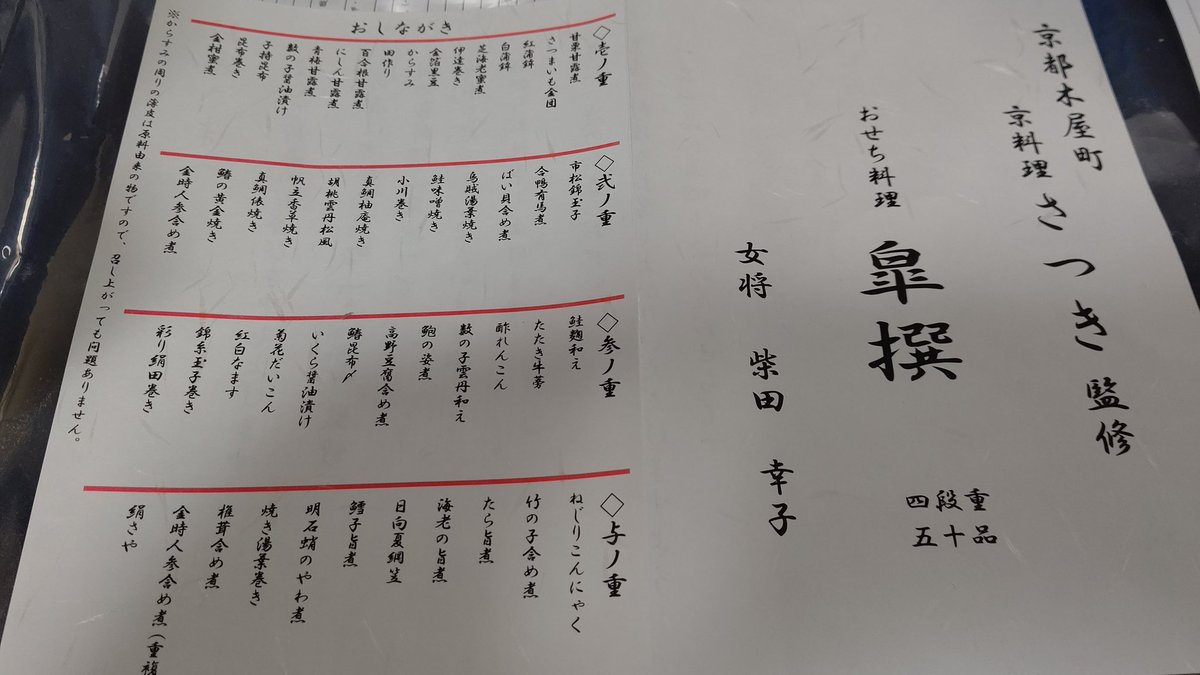 京都木屋町
京料理 さつき 監修
おせち料理
皐撰
四段重
五十品
女将 柴田 幸子
おしながき
◇壱ノ重
甘栗甘露煮
さつまいも金団
紅蒲鉾
白蒲鉾
芝海老蜜煮
伊達巻き
金箔黒豆
からすみ
田作り
百合根甘露煮
にしん甘露煮
青梅甘露煮
数の子醤油漬け
子持昆布
昆布巻き
金柑蜜煮
◇弐ノ重
市松錦玉子
合鴨有馬煮
ばい貝含め煮
烏賊湯葉焼き
鮭味噌焼き
小川巻き
真鯛柚庵焼き
胡桃雲丹松風
帆立香草焼き
真鯛俵焼き
鰆の黄金焼き
金時人参含め煮
◇参ノ重
鮭麹和え
たたき牛蒡
酢れんこん
数の子雲丹和え
鮑の姿煮
高野豆腐含め煮
鰆昆布〆
いくら醤油漬け
菊花だいこん
紅白なます
錦糸玉子巻き
彩り絹田巻き
◇与ノ重
ねじりこんにゃく
竹の子含め煮
たら旨煮
海老の旨煮
日向夏網笠
鱈子旨煮
明石蛸のやわ煮
焼き湯葉巻き
椎茸含め煮
金時人参含め煮(重複
絹さや
※からすみの周りの薄皮は原料由来の物ですので、召し上がっても問題ありません。